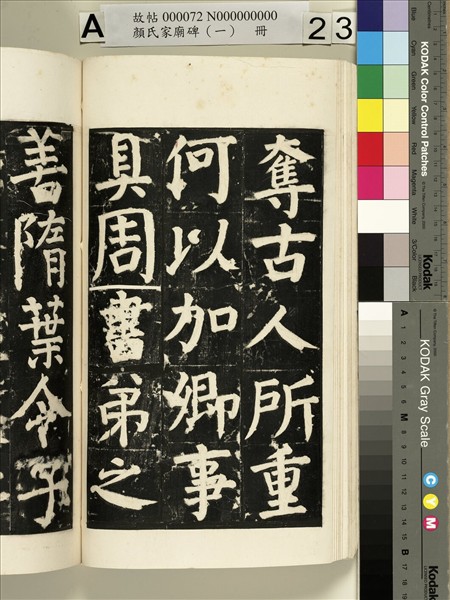 故帖 000072 N000000000
顏氏家廟碑（一） 冊
A
23
奪古人所重
何以加卿事
具周書弟之
善隋葉令子
KODAK Color Control Patches
Blue
Cyan
Green
Yellow
Red
Magenta
White
3/Color
Black
Kodak
KODAK Gray Scale
A
1
2
3
4
5
6
M
8
9
10
11
12
13
14
15
B
17
18
19
C
Y
M
Kodak